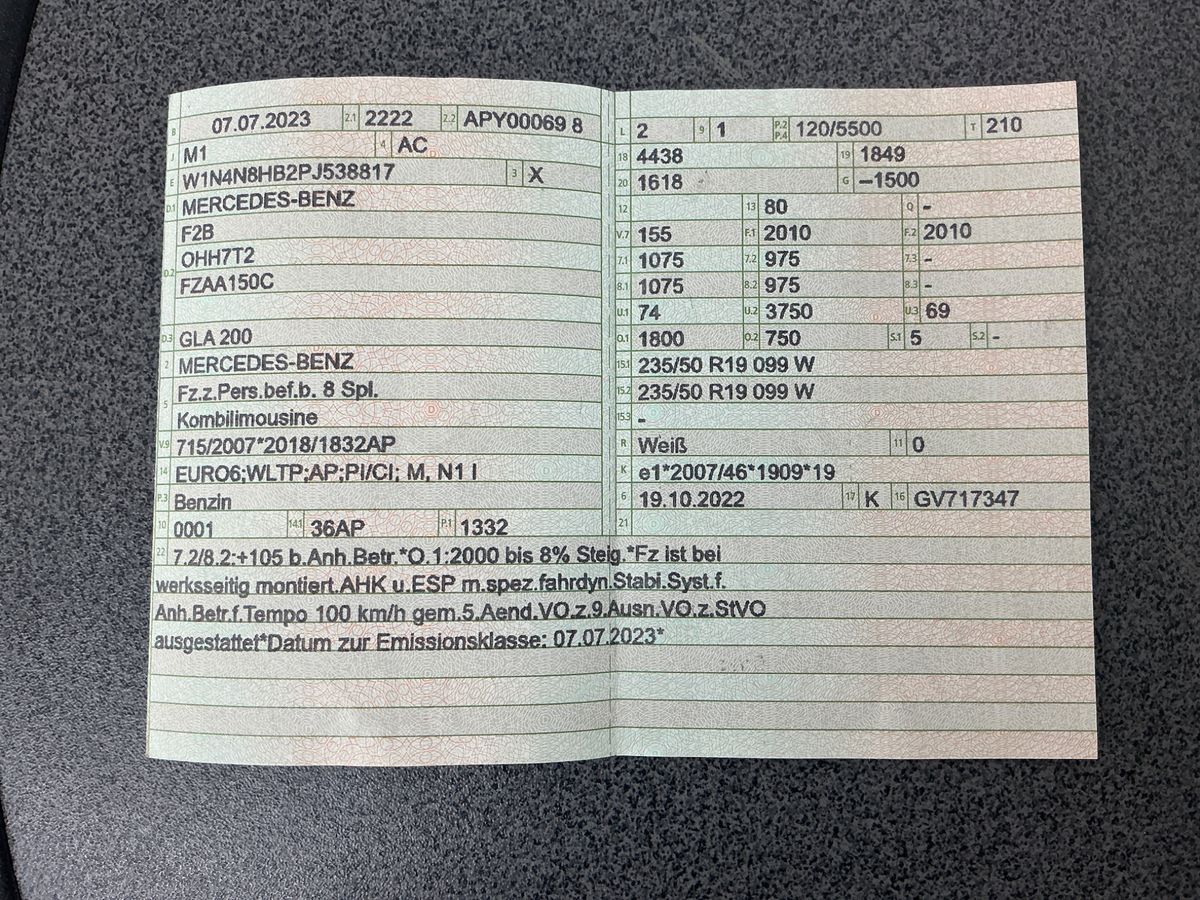 B 07.07.2023 2.1 2222 2.2 APY00069 8
J M1 4 AC
E W1N4N8HB2PJ538817 3 X
D.1 MERCEDES-BENZ
F2B
D.2 OHH7T2
FZAA150C
D.3 GLA 200
2 MERCEDES-BENZ
5 Fz.z.Pers.bef.b. 8 Spl.
Kombilimousine
V.9 715/2007*2018/1832AP
14 EURO6;WLTP;AP;PI/CI; M, N1 I
P.3 Benzin
10 0001 14.1 36AP P.1 1332
L 2 9 1 P.2 P.4 120/5500 T 210
18 4438 19 1849
20 1618 G –1500
12 13 80 Q -
V.7 155 F.1 2010 F.2 2010
7.1 1075 7.2 975 7.3 -
8.1 1075 8.2 975 8.3 -
U.1 74 U.2 3750 U.3 69
O.1 1800 O.2 750 S.1 5 S.2 -
15.1 235/50 R19 099 W
15.2 235/50 R19 099 W
15.3 -
R Weiß 11 0
K e1*2007/46*1909*19
6 19.10.2022 17 K 16 GV717347
21
22 7.2/8.2:+105 b.Anh.Betr.*O.1:2000 bis 8% Steig.*Fz ist bei
werksseitig montiert.AHK u.ESP m.spez.fahrdyn.Stabi.Syst.f.
Anh.Betr.f.Tempo 100 km/h gem.5.Aend.VO.z.9.Ausn.VO.z.StVO
ausgestattet*Datum zur Emissionsklasse: 07.07.2023*